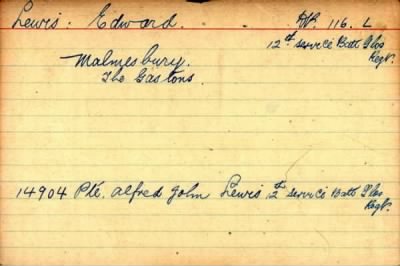 Lewis. Edward. W. 116. L
12th service Batt Glos
Regt.
Malmesbury.
The Gastons.
14904 Pte. Alfred John Lewis 12th service Batt Glos
Regt.